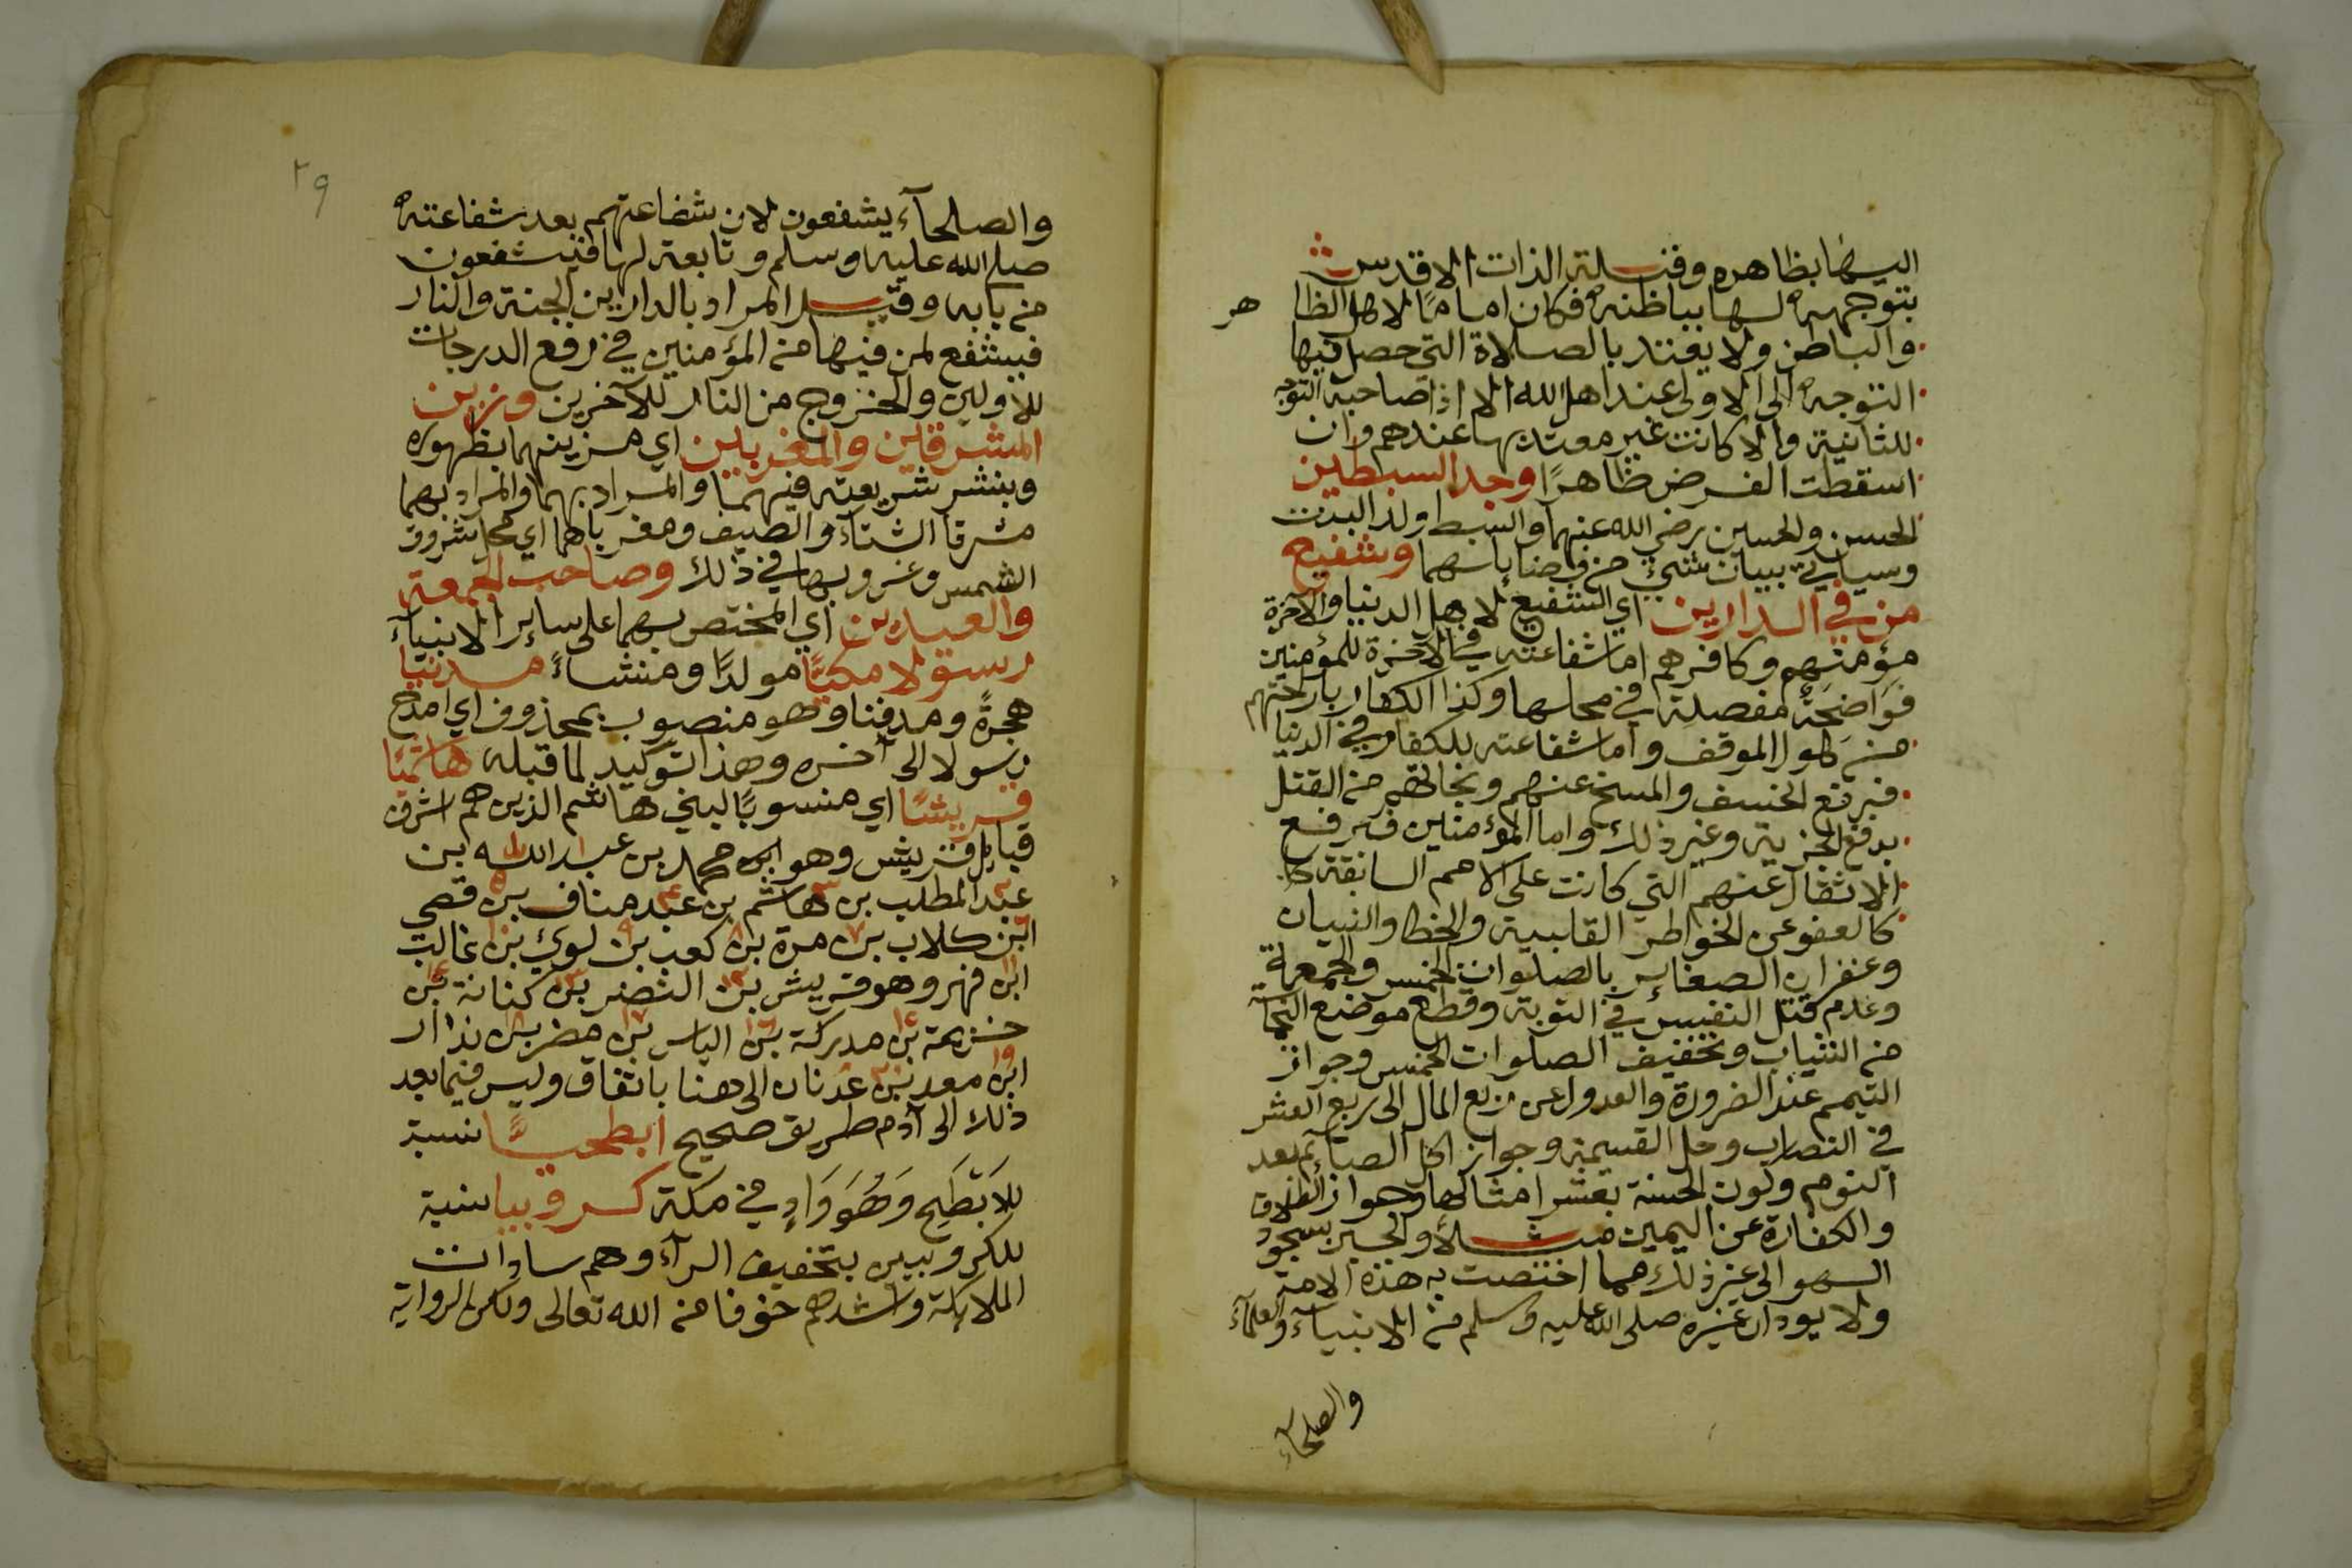 اليها بظاهره وقبلة الذات الاقدس
بتوجهه لها بباطنه فكان اماما لاهل الظا هر
والباطن ولا يعتد بالصلاة التي حصل فيها
التوجه الى الاولى عند اهل الله الا اذا صاحبه التوجه
للثانية والا كانت غير معتد بها عندهم وان
اسقطت الفرض ظاهرًا وجد السبطين
الحسن والحسين رضي الله عنهما والسبط ولد البنت
وسياتي بيان شيء من فضايلهما وشفيع
من في الدارين اي الشفيع لاهل الدنيا والآخرة
مؤمنهم وكافرهم اما شفاعته في الآخرة للمؤمنين
فواضحة مفصلة في محلها وكذا الكفار باراحتهم
من طول الموقف واما شفاعته للكفار في الدنيا
فبرفع الخسف والمسخ عنهم ونجاتهم من القتل
بدفع الجزية وغير ذلك واما المؤمنين فبرفع
الاثقال عنهم التي كانت على الامم السابقة كا
كالعفو عن الخواطر القلبية والخطا والنسيان
وغفران الصغاير بالصلوات الخمس والجمعة
وعدم قتل النفس في التوبة وقطع موضع النجاسة
من الثياب وتخفيف الصلوات الخمس وجواز
التيمم عند الضرورة والعدول عن ربع المال الى ربع العشر
في النصاب وحل القسيمة وجواز اكل الصائم بعد
النوم وكون الحسنة بعشر امثالها وجواز الطلاق
والكفارة عن اليمين مثلاً والجبر بسجود
السهو الى غير ذلك مما اختصت به هذه الامة
ولا يرد ان غيره صلى الله عليه وسلم من الانبيآء والعلمآء
والصلحآء
٢٩
والصلحآء يشفعون لان شفاعتهم بعد شفاعته
صلى الله عليه وسلم وتابعة لها فيشفعون
من بابه وقيل المراد بالدارين الجنة والنار
فيشفع لمن فيها من المؤمنين في رفع الدرجات
للاولين والخروج من النار للآخرين وزين
المشرقين والمغربين اي مزينهما بظهوره
وبنشر شريعته فيهما والمراد بهما والمراد بهما
مشرقا الشتآء والصيف ومغرباهما اي محل شروق
الشمس وغروبها في ذلك وصاحب الجمعة
والعيدين اي المختص بهما على ساير الانبيآء
رسولا مكيًّا مولدًا ومنشاءً مدنيا
هجرةً ومدفنا وهو منصوب بمحذوف اي امدح
رسولا الى آخره وهذا توكيد لما قبله هاشميًا
قريشًا اي منسوبًا لبني هاشم الذين هم اشرف
قبايل قريش وهو ابو محمد بن عبد الله بن
عبد المطلب بن هاشم بن عبد مناف بن قصي
ابن كلاب بن مرة بن كعب بن لوي بن غالب
ابن فهر وهو قريش بن النضر بن كنانة بن
خزيمة بن مدركة بن الياس بن مضر بن نذار
ابن معد بن عدنان الى هنا باتفاق وليس فيما بعد
ذلك الى آدم طريق صحيح ابطحيًّا نسبة
للاَبْطَحِ وَهُوَ وَادٍ في مكة كروبيا نسبة
للكروبيين بتخفيف الرآء وهم سادات
الملايكة واشدهم خوفا من الله تعالى ولكن الرواية